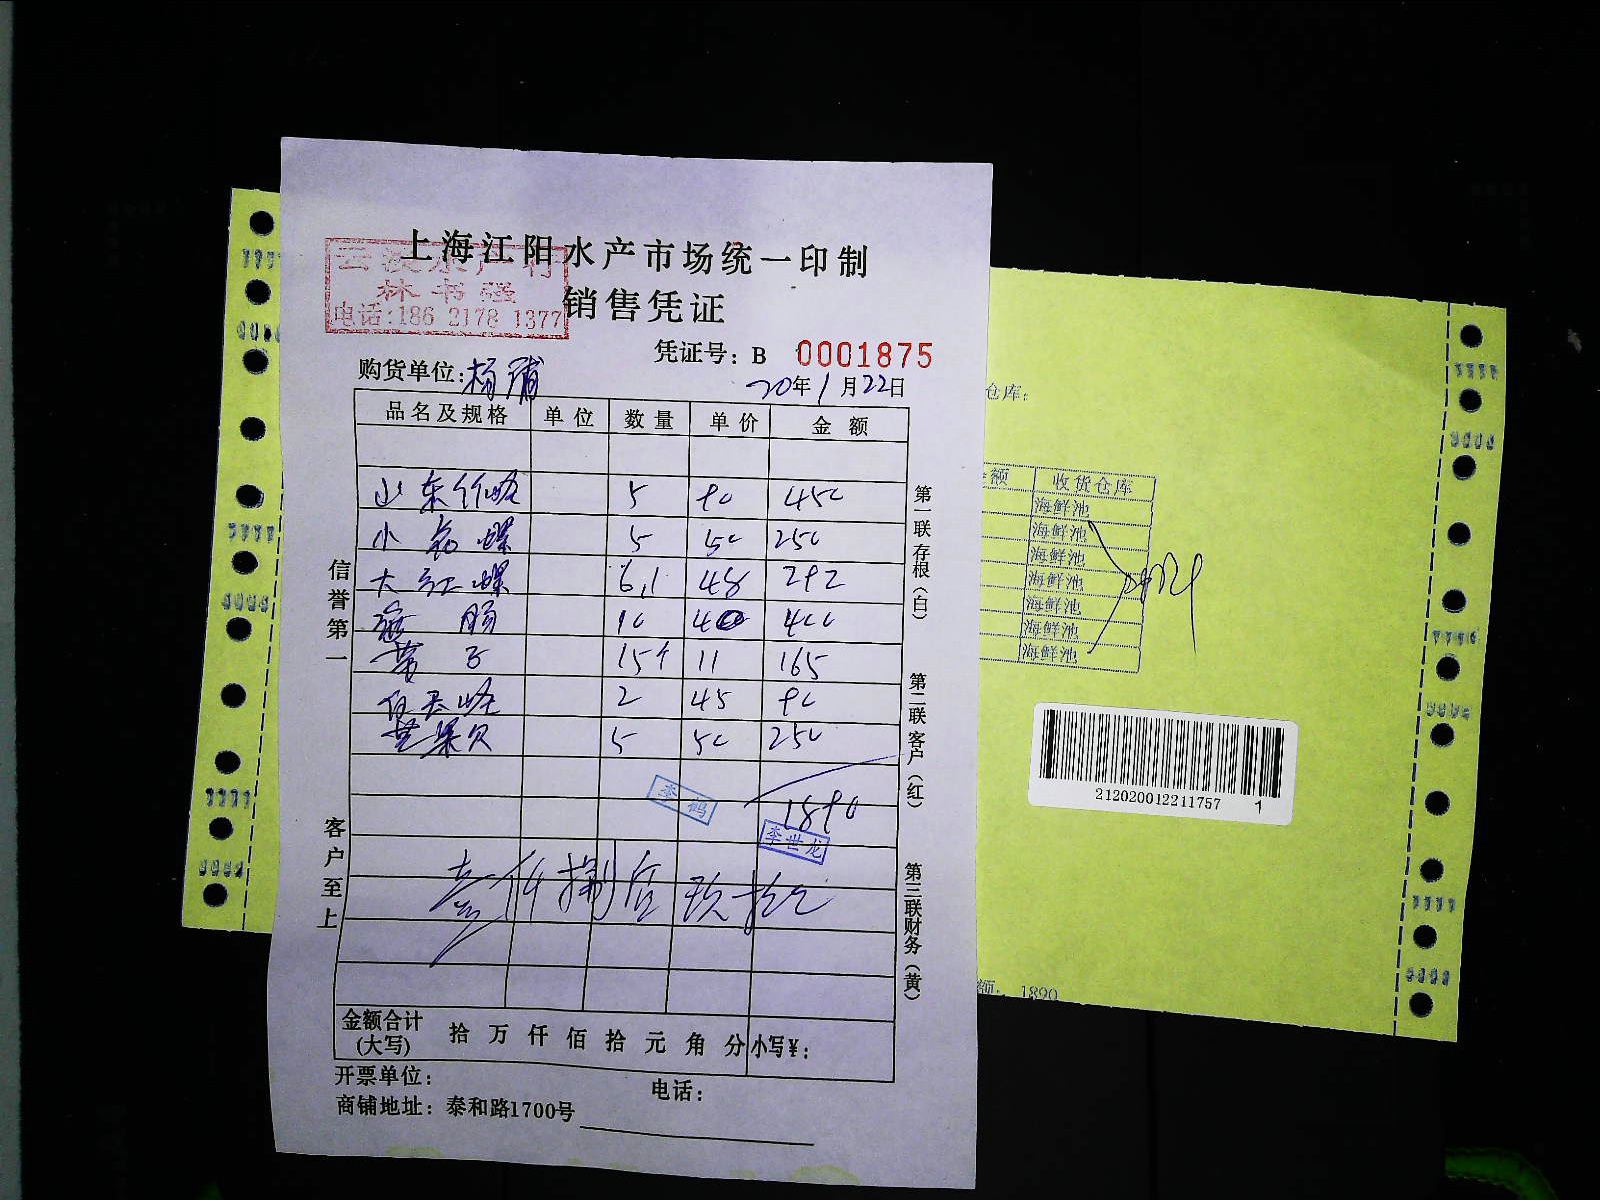 上海江阳水产市场统一印制
林书强
电话:186 2178 1377
销售凭证
凭证号：B 0001875
购货单位:杨浦
20年1月22日
品名及规格 单位 数量 单价 金额
山东竹蛏 5 90 450
小 螺 5 50 250
大红螺 6.1 48 292
肠 10 40 400
带子 15个 11 165
蛏 2 45 90
芒果贝 5 50 250
1890
李鹤
李世龙
壹仟捌佰玖拾元
信誉第一
客户至上
第一联存根（白）
第二联客户（红）
第三联财务（黄）
金额合计
(大写) 拾 万 仟 佰 拾 元 角 分 小写¥：
开票单位： 电话：
商铺地址：泰和路1700号
仓库：
额 收货仓库
海鲜池
海鲜池
海鲜池
海鲜池
海鲜池
海鲜池
海鲜池
212020012211757 1
额：1890